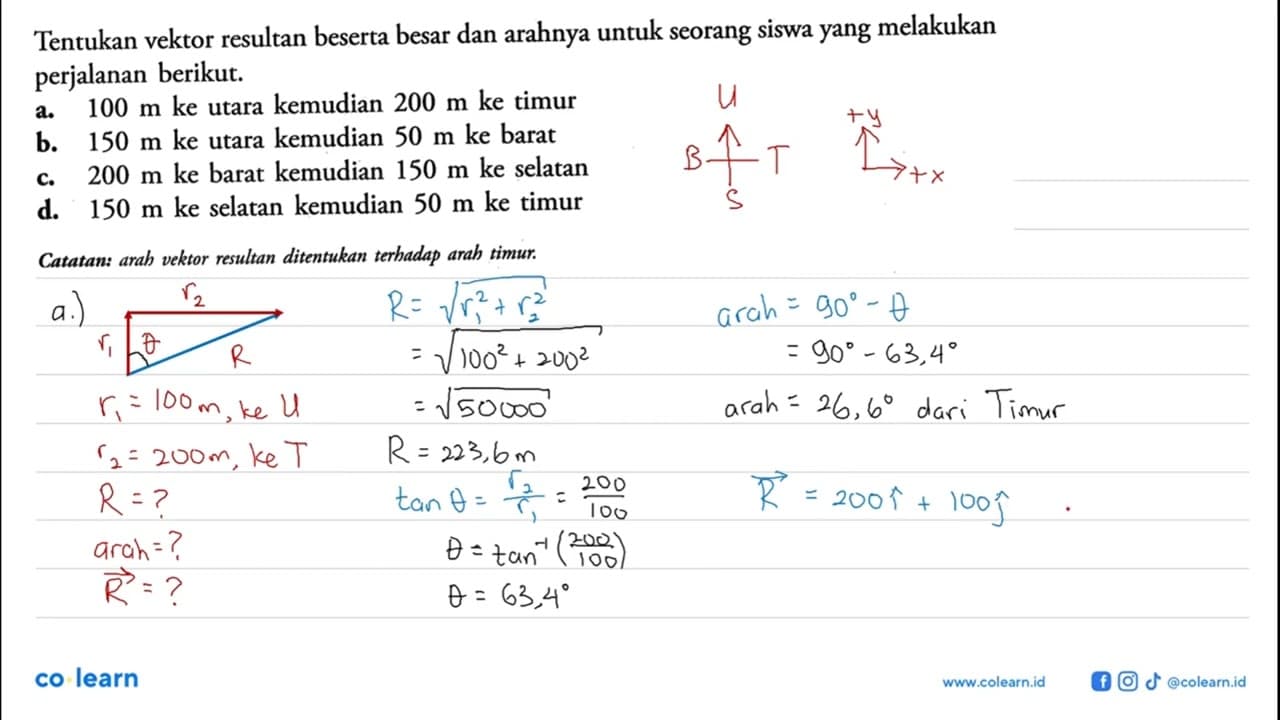 Tentukan vektor resultan beserta besar dan arahnya untuk seorang siswa yang melakukan
perjalanan berikut.
a. 100 m ke utara kemudian 200 m ke timur
b. 150 m ke utara kemudian 50 m ke barat
c. 200 m ke barat kemudian 150 m ke selatan
d. 150 m ke selatan kemudian 50 m ke timur
U
B T
S
+y
+x
Catatan: arah vektor resultan ditentukan terhadap arah timur.
a.)
r₂
r₁ θ
R
r₁ = 100 m, ke U
r₂ = 200 m, ke T
R = ?
arah = ?
R⃗ = ?
R = √(r₁² + r₂²)
= √(100² + 200²)
= √50000
R = 223,6 m
tan θ = r₂/r₁ = 200/100
θ = tan⁻¹(200/100)
θ = 63,4°
arah = 90° - θ
= 90° - 63,4°
arah = 26,6° dari Timur
R⃗ = 200î + 100ĵ .
co learn
www.colearn.id
@colearn.id